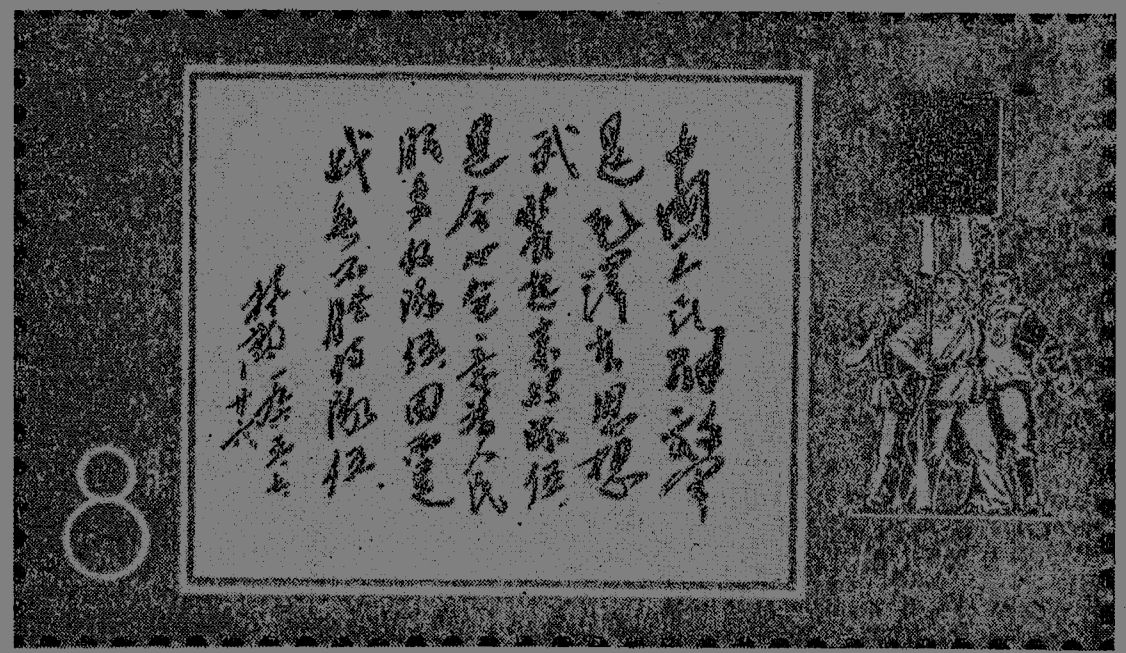 中国人民解放军
是毛泽东思想
武装起来的队伍,
是全心全意为人民
服务的队伍,因而是
战无不胜的队伍.
林彪
一九六五、七、
廿六
8